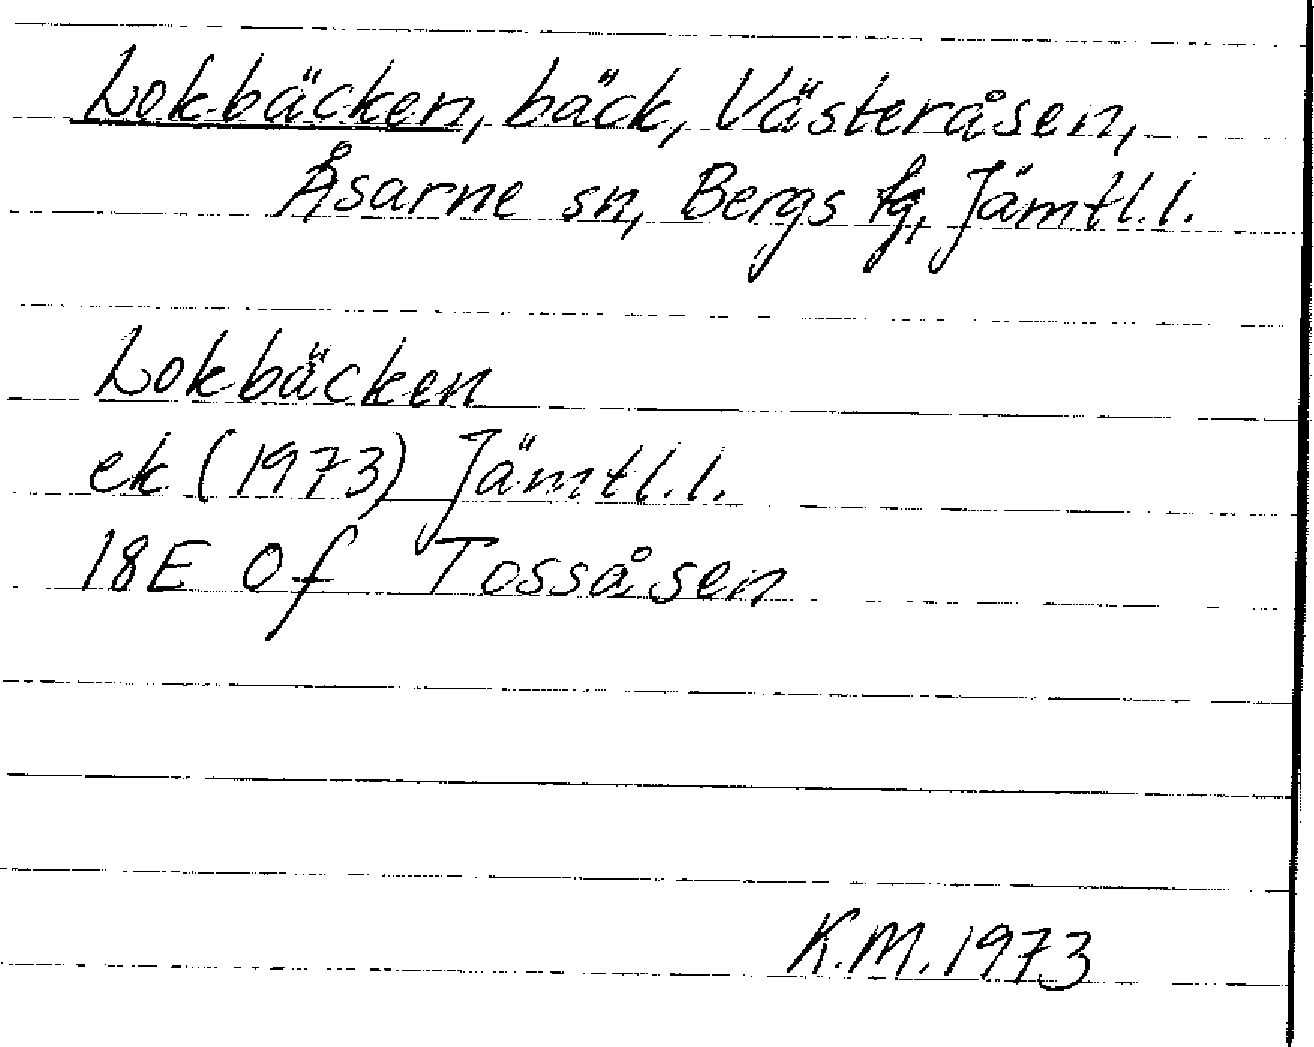 Lokbäcken, bäck, Västeråsen,
Åsarne sn, Bergs tg, Jämtl.l.
Lokbäcken
ek (1973) Jämtl.l.
18E 0f Tossåsen
K.M. 1973